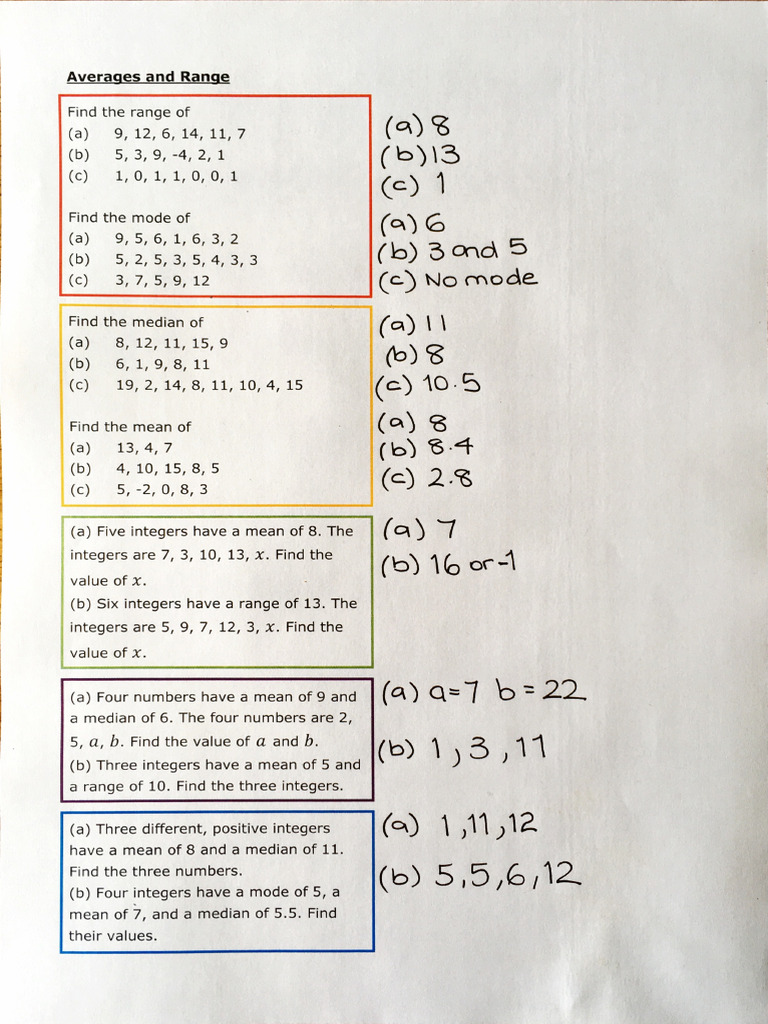 Averages and Range
Find the range of
(a) 9, 12, 6, 14, 11, 7
(b) 5, 3, 9, -4, 2, 1
(c) 1, 0, 1, 1, 0, 0, 1
(a) 8
(b) 13
(c) 1
Find the mode of
(a) 9, 5, 6, 1, 6, 3, 2
(b) 5, 2, 5, 3, 5, 4, 3, 3
(c) 3, 7, 5, 9, 12
(a) 6
(b) 3 and 5
(c) No mode
Find the median of
(a) 8, 12, 11, 15, 9
(b) 6, 1, 9, 8, 11
(c) 19, 2, 14, 8, 11, 10, 4, 15
(a) 11
(b) 8
(c) 10.5
Find the mean of
(a) 13, 4, 7
(b) 4, 10, 15, 8, 5
(c) 5, -2, 0, 8, 3
(a) 8
(b) 8.4
(c) 2.8
(a) Five integers have a mean of 8. The
integers are 7, 3, 10, 13, x. Find the
value of x.
(b) Six integers have a range of 13. The
integers are 5, 9, 7, 12, 3, x. Find the
value of x.
(a) 7
(b) 16 or -1
(a) Four numbers have a mean of 9 and
a median of 6. The four numbers are 2,
5, a, b. Find the value of a and b.
(b) Three integers have a mean of 5 and
a range of 10. Find the three integers.
(a) a=7 b=22
(b) 1, 3, 11
(a) Three different, positive integers
have a mean of 8 and a median of 11.
Find the three numbers.
(b) Four integers have a mode of 5, a
mean of 7, and a median of 5.5. Find
their values.
(a) 1, 11, 12
(b) 5, 5, 6, 12